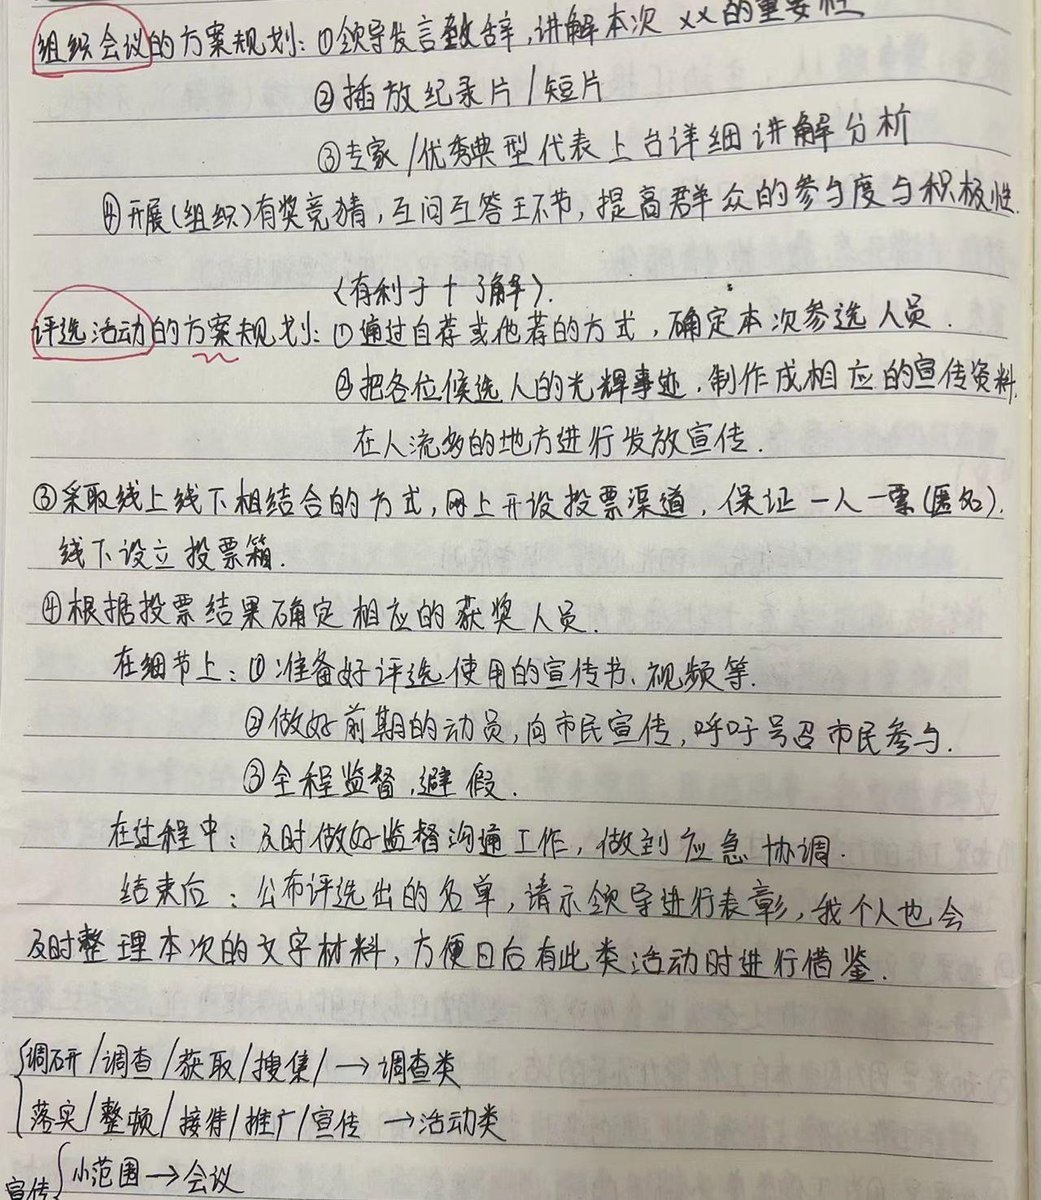 组织会议的方案规划：①领导发言致辞，讲解本次 xx的重要性
②播放纪录片/短片
③专家/优秀典型代表上台详细讲解分析
④开展(组织)有奖竞猜，互问互答环节，提高群众的参与度与积极性.
(有利于十了解).
评选活动的方案规划：①通过自荐或他荐的方式，确定本次参选人员.
②把各位候选人的光辉事迹.制作成相应的宣传资料.
在人流多的地方进行发放宣传.
③采取线上线下相结合的方式，网上开设投票渠道，保证一人一票(匿名).
线下设立投票箱.
④根据投票结果确定相应的获奖人员.
在细节上：①准备好评选使用的宣传书、视频等.
②做好前期的动员，向市民宣传，呼吁号召市民参与.
③全程监督，避假.
在过程中：及时做好监督沟通工作，做到应急协调.
结束后：公布评选出的名单，请示领导进行表彰，我个人也会
及时整理本次的文字材料，方便日后有此类活动时进行借鉴.
调研/调查/获取/搜集/→调查类
落实/整顿/接待/推广/宣传→活动类
宣传{小范围→会议